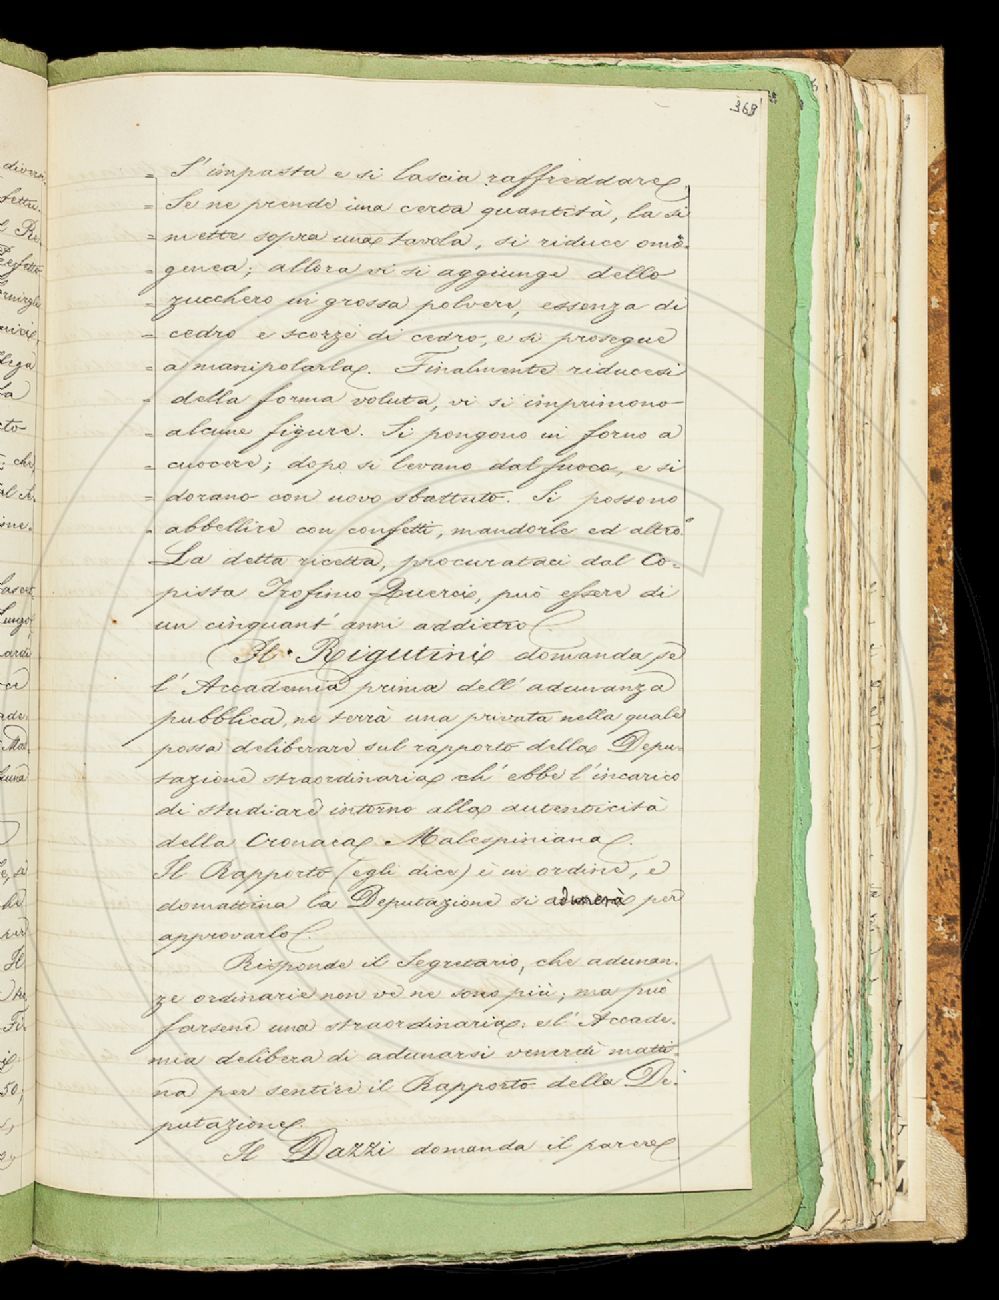 363
= S'impasta e si lascia raffreddare.
= Se ne prende una certa quantità, la si
= mette sopra una tavola, si riduce omo-
= genea; allora vi si aggiunge dello
= zucchero in grossa polvere, essenza di
= cedro e scorze di cedro, e si prosegue
= a manipolarla. Finalmente riducesi
= della forma voluta, vi si imprimono
= alcune figure. Si pongono in forno a
= cuocere; dopo si levano dal fuoco, e si
= dorano con uovo sbattuto. Si possono
= abbellire con confetti, mandorle ed altro."
La detta ricetta, procurataci dal Co-
pista Trofimo Querci, può essere di
un cinquant'anni addietro.
Il Rigutini domanda se
l'Accademia prima dell'adunanza
pubblica, ne terrà una privata nella quale
possa deliberare sul rapporto della Depu-
tazione straordinaria ch'ebbe l'incarico
di studiare intorno alla autenticità
della Cronaca Malespiniana.
Il Rapporto (egli dice) è in ordine, e
domattina la Deputazione si adunerà per
approvarlo.
Risponde il Segretario, che adunan-
ze ordinarie non ve ne sono più; ma può
farsene una straordinaria: e l'Accade-
mia delibera di adunarsi venerdì matti-
na per sentire il Rapporto della De-
putazione.
Il Dazzi domanda il parere